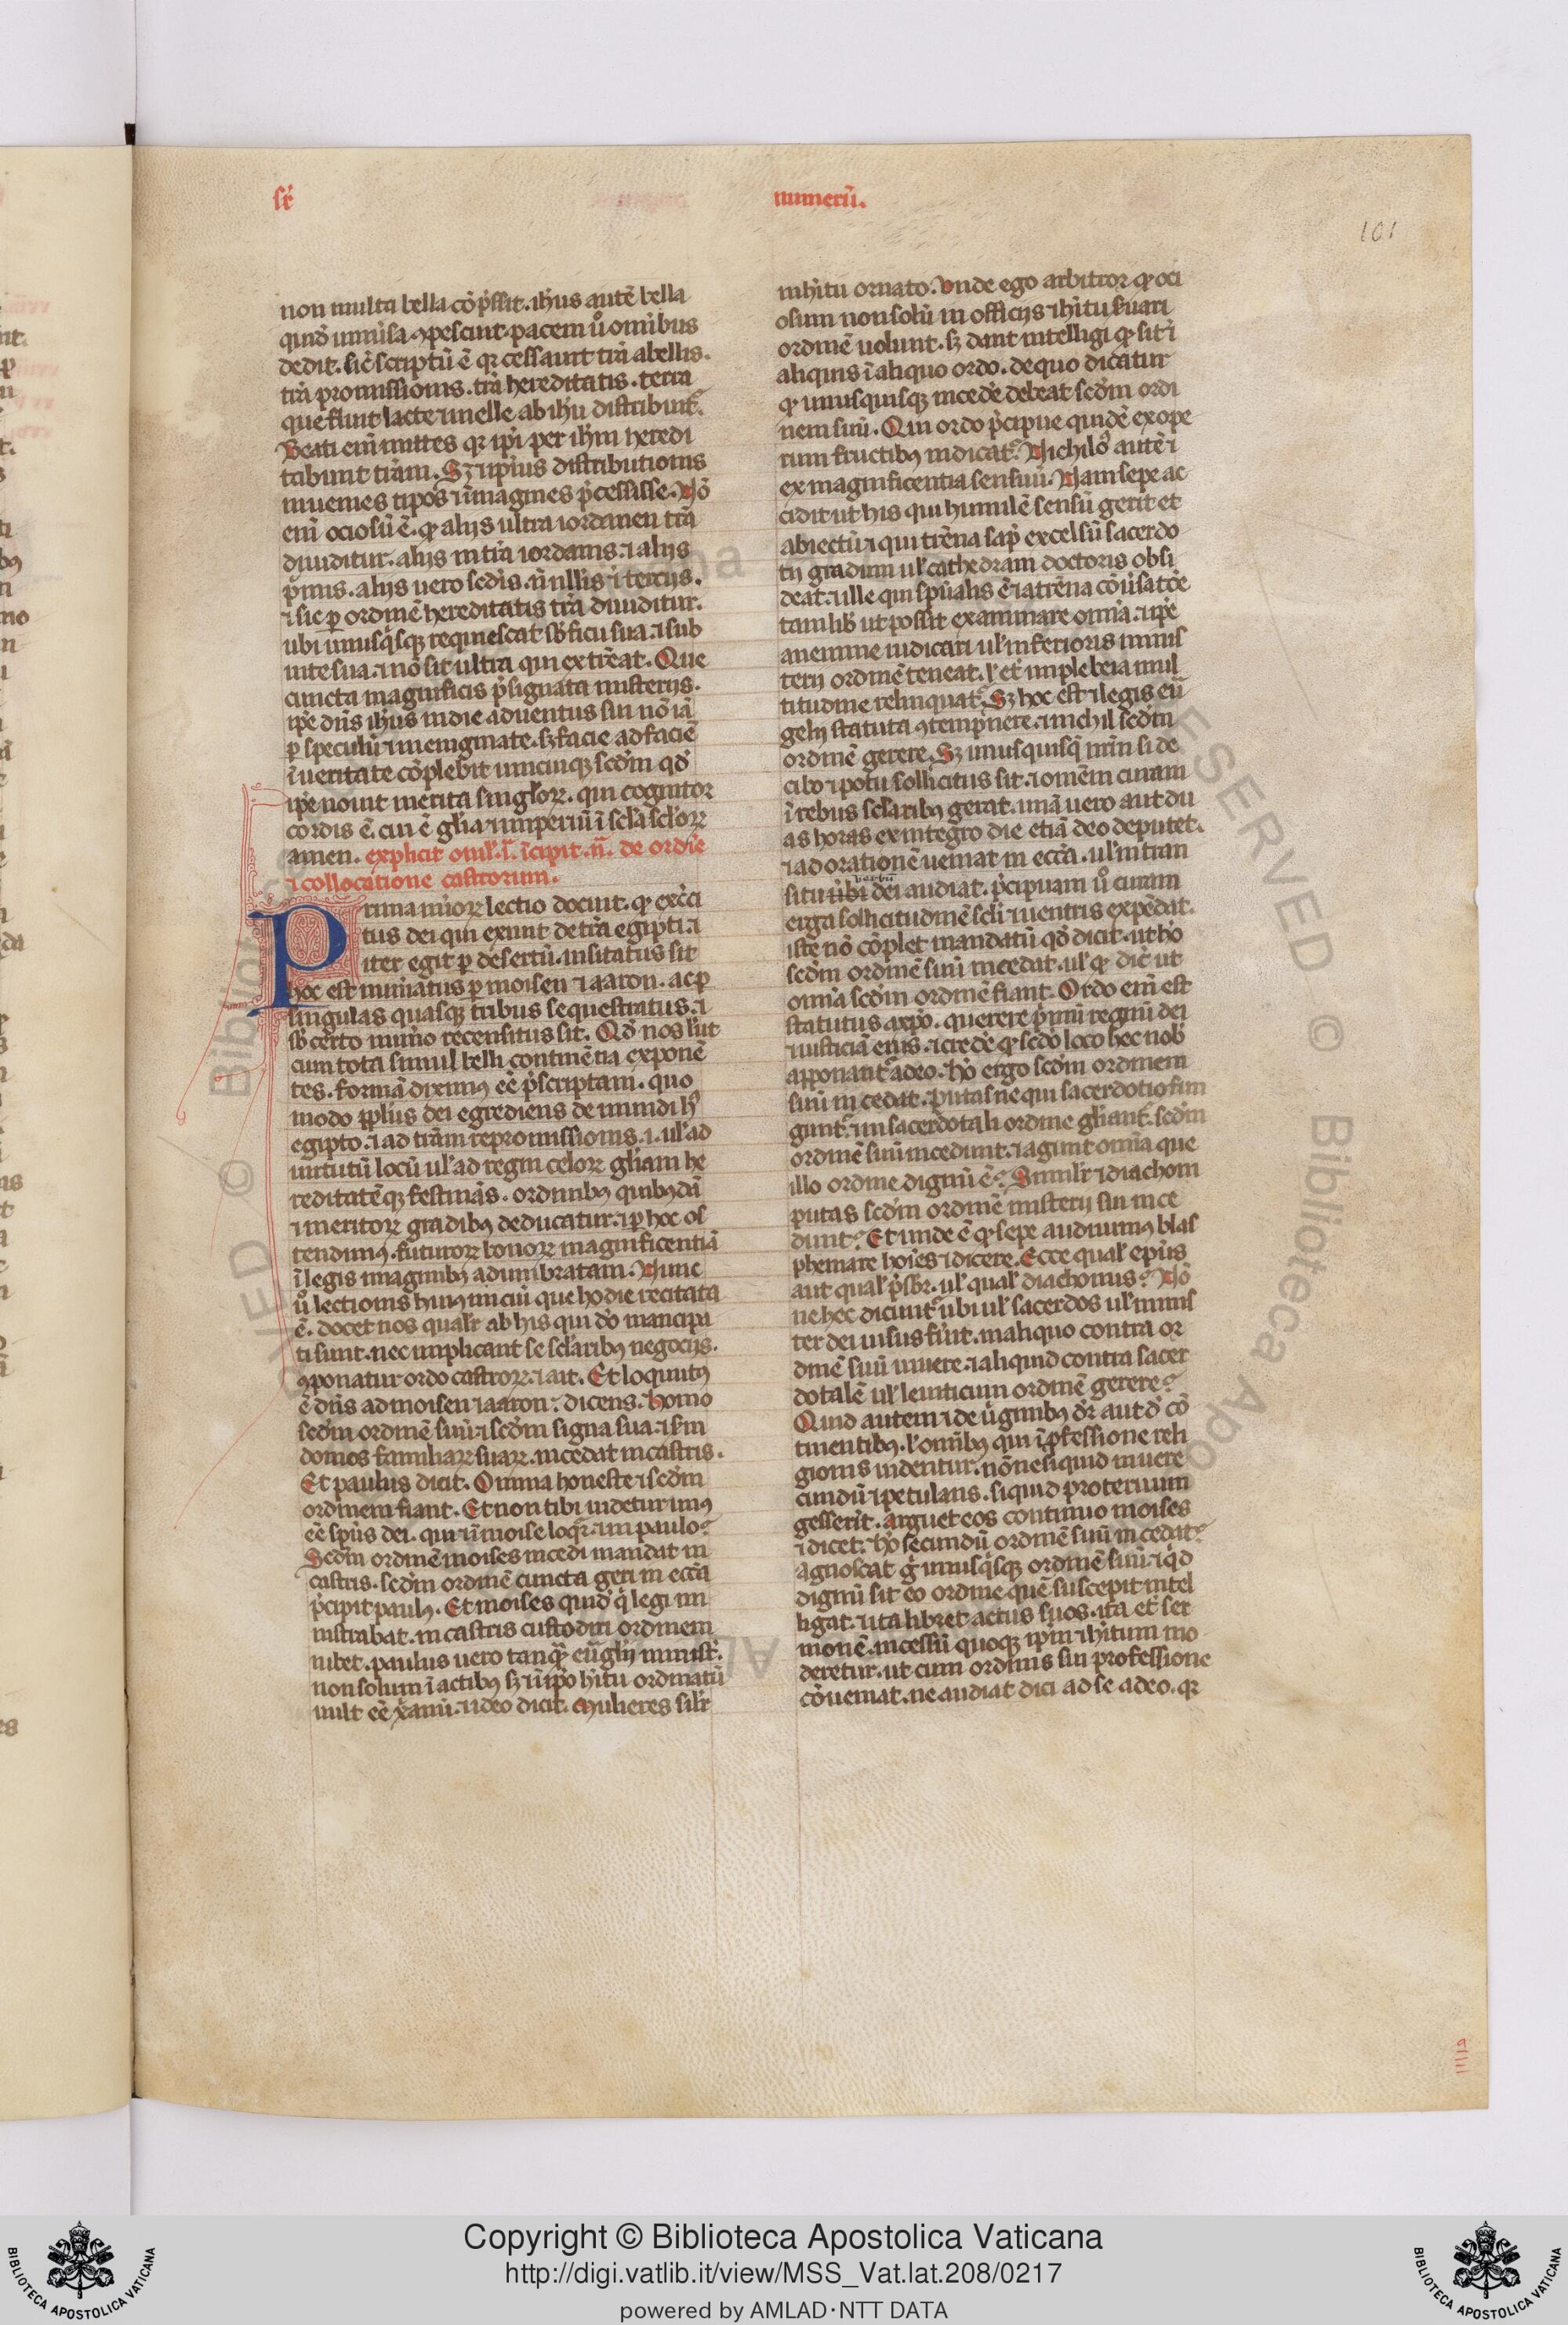 sr̄
numerū.
101
non multa bella cōp̄ssit. ih̄us autē bella
quid̄ uniūsa ꝯpescuit. pacem u̓o omībus
dedit. sic̄ scriptū ē qr cessauit tr̄a a bellis.
tr̄a promissionis. tr̄a hereditatis. terra
que fluit lacte ⁊ melle ab ih̄u distribuit᷑.
Beati eni᷑ mittes qr ip̄i per ih̄m heredi
tabunt tr̄am. Sꝫ ⁊ ipīus distributionis
inuenies tipos ⁊ ꝯ̄magines p̄cessisse. Nō
eni᷑ ociosū ē. qđ alijs ultra iordanen tr̄a
diuiditur. alijs in tr̄a iordanis. ⁊ alijs
p̄mis. alijs uero sed̄is. n̄nullis ⁊ tercijs.
⁊ sic ꝑ ordinē hereditatis tr̄a diuiditur.
ubi unusq̄sqꝫ requiescat sb̄ ficu sua. ⁊ sub
uite sua. ⁊ nō sit ultra qui extr̄eat. Que
cuncta magnificis p̄signata misterijs.
ip̄e dn̄s ih̄us in die aduentus sui nō iā
ꝑ speculū ⁊ in enigmate. sꝫ facie ad faciē
ī ueritate cōplebit unicuiqꝫ scđm qđ
ip̄e nouit merita singl̓oꝝ. qui cognitor
cordis ē. cui ē gl̓ia ⁊ imperiū ī scl̓a scl̓oꝝ
amen. explicit omī. ī. īcipit .ii. de ordīe
⁊ collocatione castrorum.
Prima nūoꝝ lectio docuit. qđ exēci
tus dei qui exiuit de tr̄a egipti. ⁊
iter egit ꝑ desertū. uisitatus sit
hoc est nūiatus ꝑ moisen ⁊ aaron. ac ꝑ
singulas quasqꝫ tribus sequestratus. ⁊
sb̄ cērto nūio recensitus sit. Qđ nos sit̄
cum tota simul belli continētia exponē
tes. formā diximꝰ eē p̄scriptam. quo
modo ppl̓us dei egrediens de mundi hꝰ
egipto. ⁊ ad tr̄am repromissionis .i. ul̓ ad
uirtutū locū ul̓ ad regni celoꝝ gl̓iam he
reditatēqꝫ festinās. ordinibꝰ quibꝰdā
⁊ meritoꝝ gradibꝰ deducatur. ⁊ ꝑ hoc os
tendimꝰ. futuroꝝ bonoꝝ magnificentiā
ī legis imaginibꝰ adumbratam. Nunc
u̓o lectionis huiꝰ iniciū que hodie recitata
ē. docet nos qualr̄ ab his qui dō mancipa
ti sunt. nec implicant se scl̓aribꝰ negocijs.
ꝯponatur ordo castroꝝ. ⁊ ait. Et loquutꝰ
ē dn̄s ad moisen ⁊ aaron. dicens. homo
scđm ordinē suū. ⁊ scđm signa sua. ⁊ sm̄
domos familiaꝝ suaꝝ. incedat in castris.
Et paulus dicit. Omnia honeste ⁊ scđm
ordinem fiant. Et non tibi uidetur unꝰ
eē spūs dei. qui ⁊ ī moise loqr̄. ⁊ in paulo?
Scđm ordinē moises incedi mandat in
castris. scđm ordinē cuncta geri in ecc̄a
p̄cipit paulꝰ. Et moises quid̄ q̄ legi mi
nistrabat. in castris custodiri ordinem
iubet. paulus uero tanq̄ꝫ eu̓glij ministr̄.
non solum ī actibꝰ sꝫ ⁊ ī ip̄o hītu ordinatū
uult eē xānū. ⁊ ideo dicit. Mulieres silr̄
in hītu ornato. Vnde ego arbitror qđ oci
osum non solū in officijs ⁊ hītu s̄uari
ordinē uolunt. sꝫ dant intelligi qđ sit ī
aliquis ī aliquo ordo. de quo dicatur
qđ unusquisqꝫ incedēe debeat scđm ordi
nem suū. Qui ordo p̄cipue quidē ex ope
rum fructibꝰ indicat᷑. Nichilo᷑ autē ⁊
ex magnificentia sensuū. Nam sepe ac
cidit ut his qui humilē sensū gerit et
abiectū. ⁊ qui trēna sapit excelsū sacerdo
tij gradum ul̓ cathedram doctoris obsi
deat. ⁊ ille qui spūalis ē. ⁊ a trēna cōūsatōe
tam lib̄ ut possit examinare omīa. ⁊ ip̄e
a nemine iudicari ul̓ inferioris minis
terij ordinē teneat. l̓ et̄ in plebeia mul
titudine relinquat᷑. Sꝫ hoc est ⁊ legis eu̓
gelij statuta ꝯtemp̄nere. ⁊ nichil scđm
ordinē gerere. Sꝫ unusquisqꝫ nr̄m si de
cibo ⁊ potu sollicitus sit. ⁊ omēm curam
ī rebus scl̓aribꝰ gerat. unā uero aut du
as horas ex integro die etiā deo deputet.
⁊ ad orationē ueniat in ecc̄a. ul̓ in tran
situ ūbi uerbū dei audiat. p̄cipuam u̓o curam
erga sollicitudinē scl̓i ⁊ uentris expēdat.
iste nō cōplet mandatū qđ dicit. ut hō
scđm ordinē suū incedat. ul̓ qđ dic̄ ut
omīa scđm ordinē fiant. Ordo eni᷑ est
statutus a xp̄o. querere p̄mū regnū dei
⁊ iusticiā eius. ⁊ credēe qđ scđo loco hec nob̄
apponant᷑ a deo. hō ergo scđm ordinem
suū incedat. putas ne qui sacerdotio fun
gunt᷑. ⁊ in sacerdotali ordine gl̓iant᷑. scđm
ordinē suū incedunt. ⁊ agunt omīa que
illo ordine dignū ē? Similr̄ ⁊ diachoni
putas scđm ordinē misterij sui ince
dunt? Et unde ē qđ sepe audiuimꝰ blas
phemare hoīes ⁊ dicere. Ecce qual̓ epūs
aut qual̓ p̄sbr̄. ul̓ qual̓ diachonus? Nō
ne hec dicunt᷑ ubi ul̓ sacerdos ul̓ minis
ter dei uisus fūit. in aliquo contra or
dinē suū uiuere. ⁊ aliquid contra sacer
dotalē ul̓ leuiticum ordinē gerere?
Quid autem ⁊ de ūginibꝰ dr̄ aut đ cō
tinentibꝰ. l̓ omībꝰ qui ī ꝓfessione reli
gionis uidentur. nōne si quid inuere
cundū ⁊ petulans. si quid proteruum
gesserit. arguet eos continuo moises
⁊ dicet. hō secundū ordinē suū incedat?
agnoscat ḡ unusq̄sqꝫ ordinē suū. ⁊ qd̄
dignū sit eo ordine quē suscepit intel
ligat. ⁊ ita libret actus suos. ita et̄ ser
monē. incessū quoqꝫ ip̄m ⁊ hītum mo
deretur. ut cum ordinis sui professione
cōueniat. ne audiat dici ad se a deo. qr
Copyright © Biblioteca Apostolica Vaticana
http://digi.vatlib.it/view/MSS_Vat.lat.208/0217
powered by AMLAD·NTT DATA